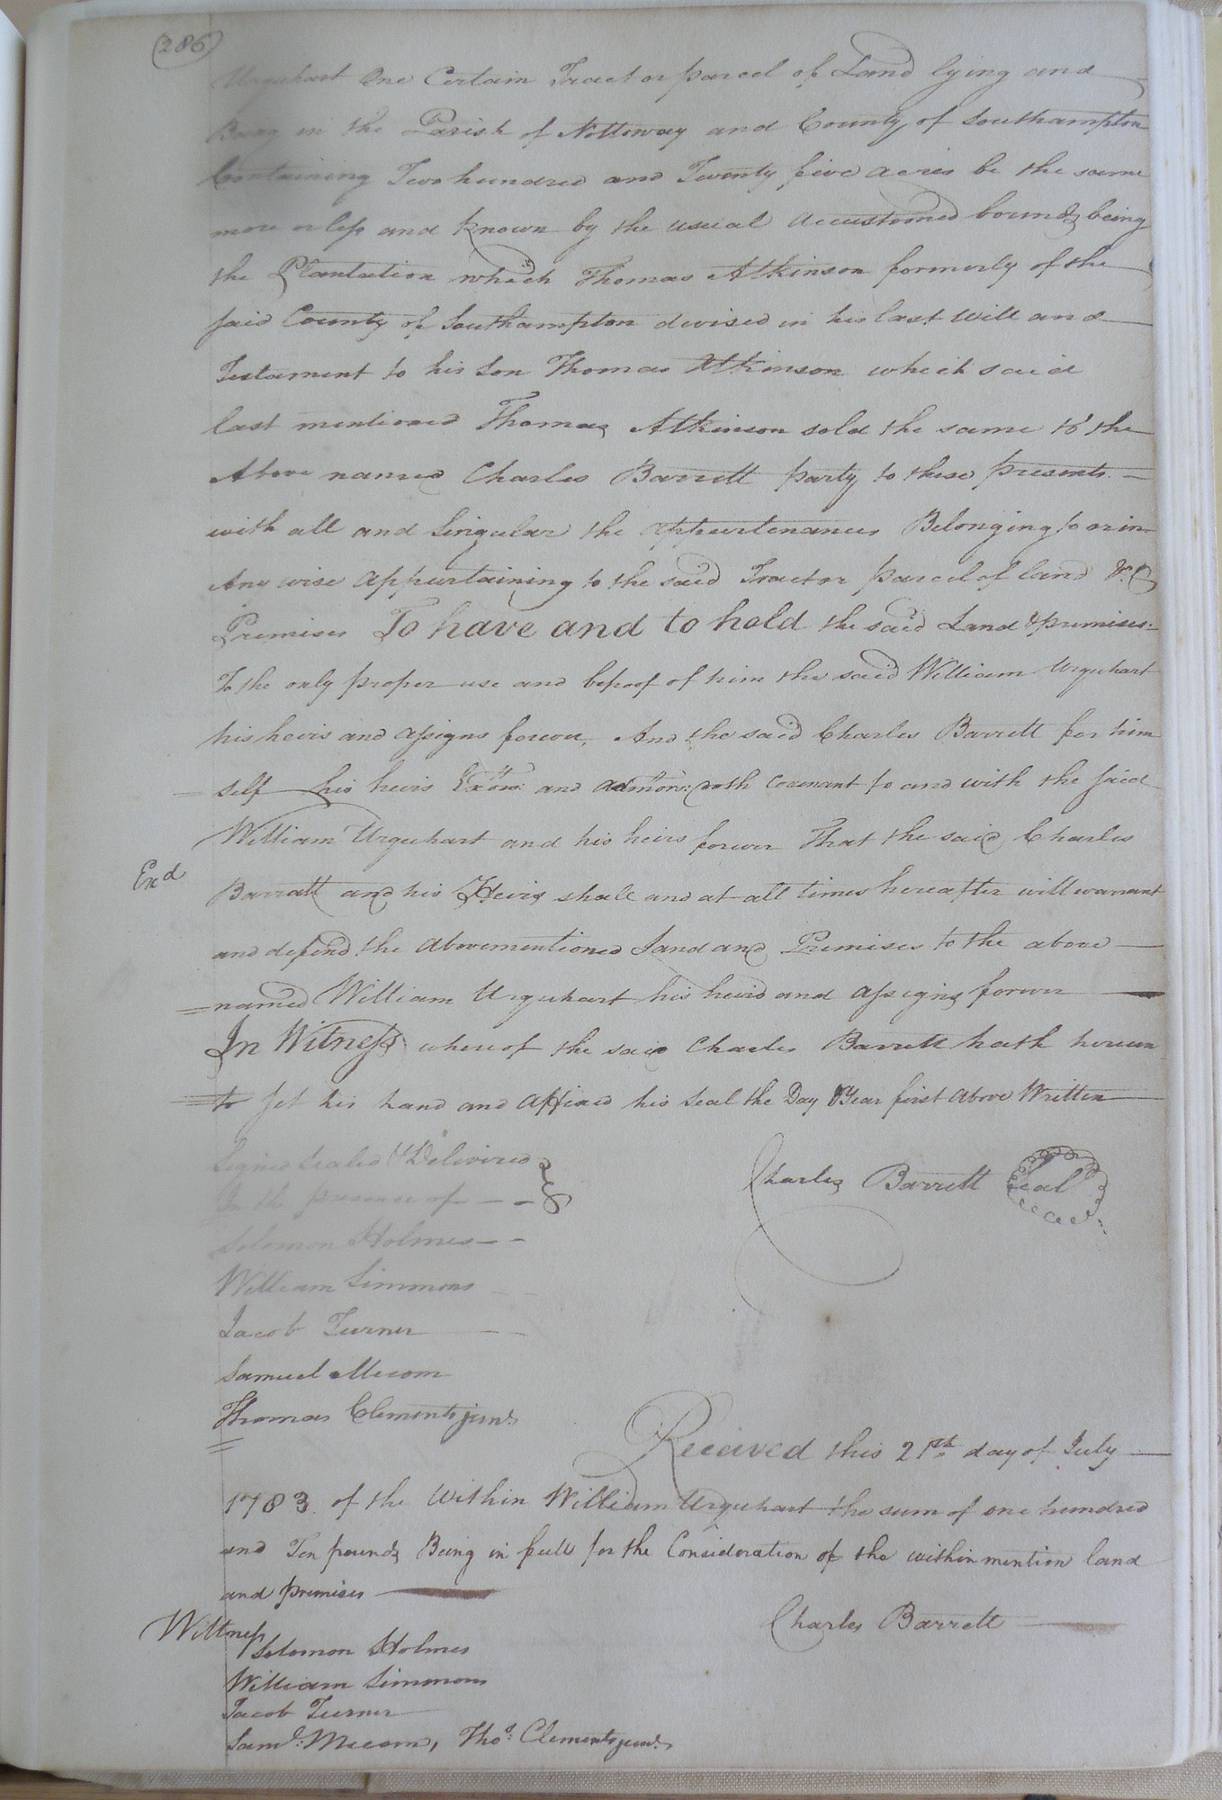 286
Urquhart One Certain Tract or parcel of Land lying and
Being in the Parish of Nottoway and County of Southampton
Containing Two hundred and Twenty five acres be the same
more or less and known by the usual accustomed bounds being
the Plantation which Thomas Atkinson formerly of the
said County of Southampton devised in his last Will and
Testament to his Son Thomas Atkinson which said
last mentioned Thomas Atkinson sold the same to the
Above named Charles Barrett party to these presents
with all and Singular the appurtenances Belonging to or in
Any wise appurtaining to the said Tract or parcel of land &c
Premises To have and to hold the said Land & premises
To the only proper use and behoof of him the said William Urquhart
his heirs and assigns forever, And the said Charles Barrett for him
self his heirs Exors: and admors: doth covenant to and with the said
William Urquhart and his heirs forever That the said Charles
Exd
Barratt and his Heirs shall and at all times hereafter will warrant
and defend the abovementioned Land and Premises to the above
named William Urquhart his heirs and assigns forever
In Witness whereof the said Charles Barrett hath hereun
to set his hand and affixed his seal the Day & Year first above Written
Signed Sealed & Delivered
In the presence of
Charles Barrett Seal
Solomon Holmes
William Simmons
Jacob Turner
Samuel Mecom
Thomas Clements junr.
Received this 21st day of July
1783. of the within William Urquhart the sum of one hundred
and Ten pounds Being in full for the Consideration of the within mention land
and premises
Charles Barrett
Wittness
Solomon Holmes
William Simmons
Jacob Turner
Saml: Mecom, Thos: Clements junr.